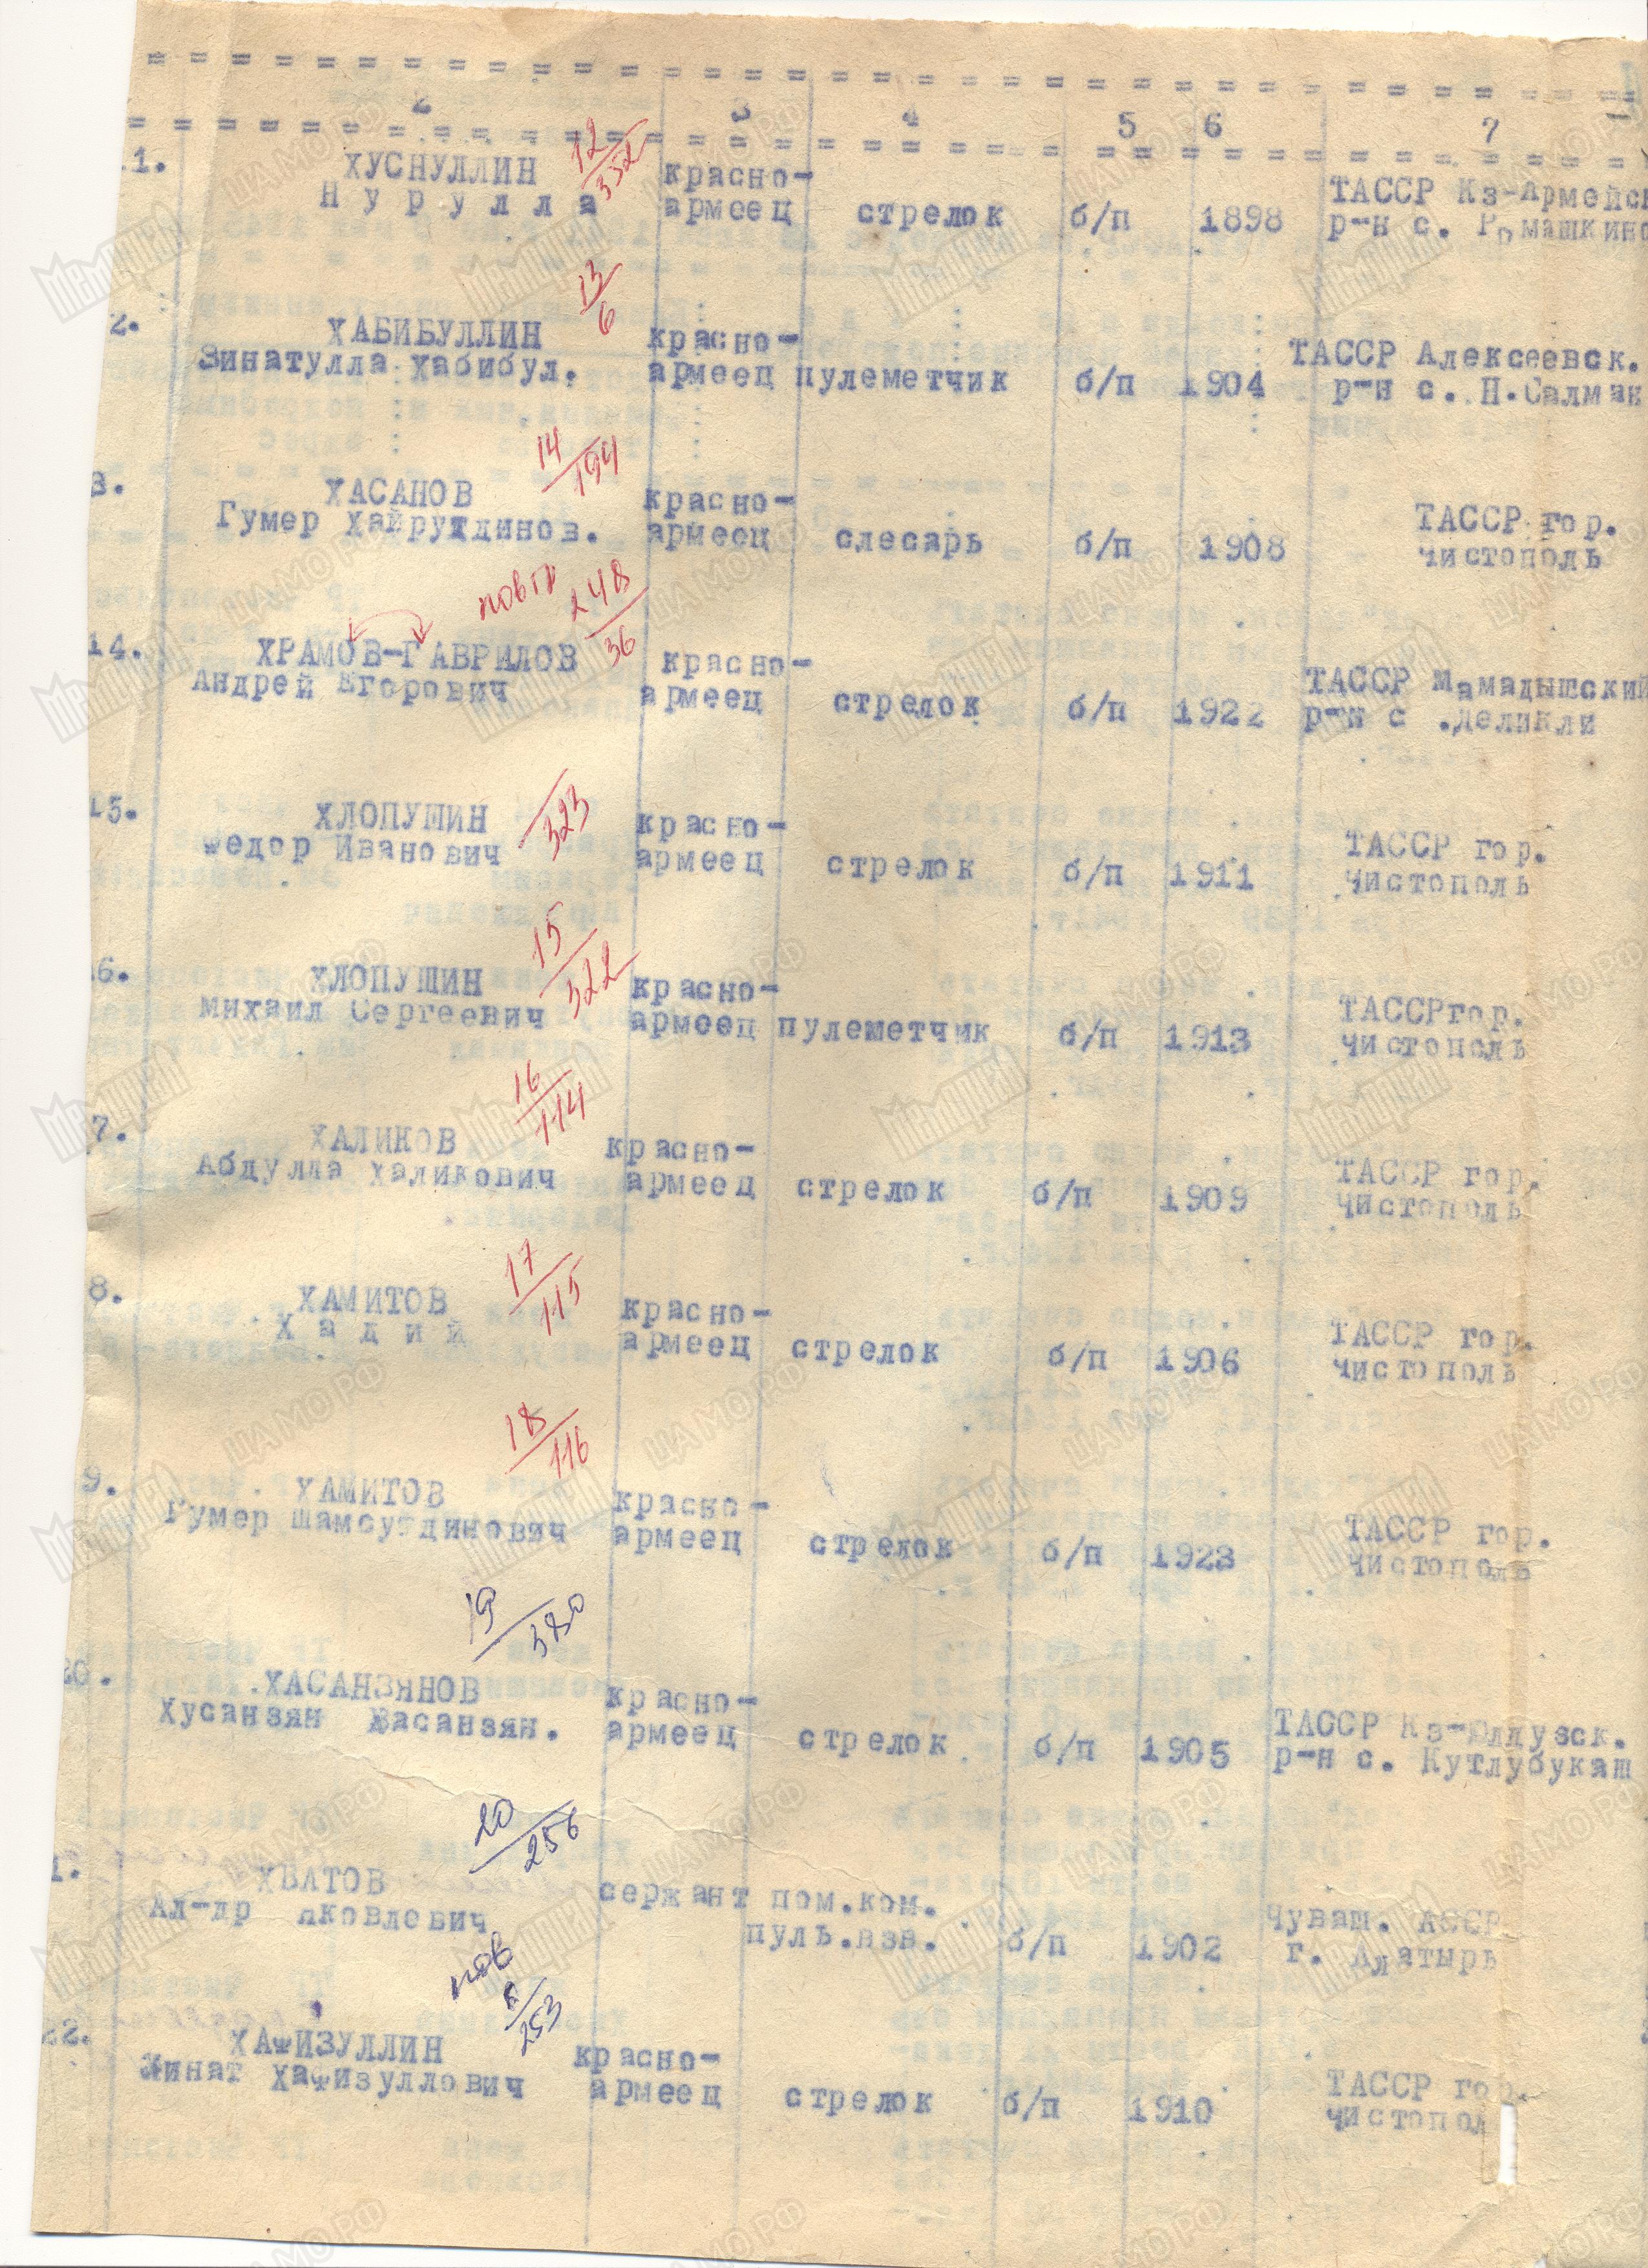 2 3 4 5 6 7
11. ХУСНУЛЛИН 12/332 красно- ТАССР Кз-Армейск
Н у р у л л а армеец стрелок б/п 1898 р-н с. Ромашкино
13/6
2. ХАБИБУЛЛИН красно- ТАССР Алексеевск.
Зинатулла Хабибул. армеец пулеметчик б/п 1904 р-н с. Н.Салман
14/194
3. ХАСАНОВ красно- ТАССР гор.
Гумер Хайрутдинов. армеец слесарь б/п 1908 чистополь
повтр 248/36
14. ХРАМОВ-ГАВРИЛОВ красно- ТАССР Мамадышский
Андрей Егорович армеец стрелок б/п 1922 р-н с .Деликли
323
15. ХЛОПУШИН красно- ТАССР гор.
Федор Иванович армеец стрелок б/п 1911 чистополь
15/322
16. ХЛОПУШИН красно- ТАССРгор.
михаил Сергеевич армеец пулеметчик б/п 1913 чистополь
16/114
7. ХАЛИКОВ красно- ТАССР гор.
Абдулла Халикович армеец стрелок б/п 1909 чистополь
17/115
8. ХАМИТОВ красно- ТАССР гор.
Х а д и й армеец стрелок б/п 1906 чистополь
18/116
9. ХАМИТОВ красно- ТАССР гор.
Гумер Шамсутдинович армеец стрелок б/п 1923 чистополь
19/380
20. ХАСАНЗЯНОВ красно- ТАССР Кз-Юлдузск.
Хусанзян Хасанзян. армеец стрелок б/п 1905 р-н с. Кутлубукаш
20/256
1. ХВАТОВ сержант пом.ком. Чуваш. АССР
Ал-др Яковлевич пуль.взв. б/п 1902 г. Алатырь
8/253
22. ХАФИЗУЛЛИН красно- ТАССР гор.
Хафизуллович армеец стрелок б/п 1910 чистопол
Мемориал
ЦАМО РФ